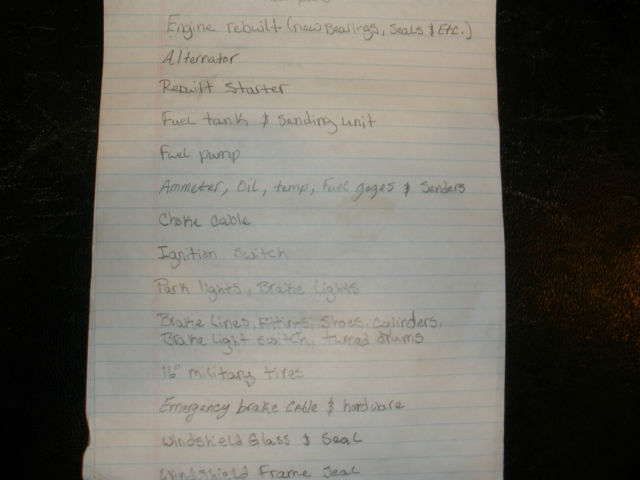 Engine rebuilt (new Bearings, Seals & Etc.)
Alternator
Rebuilt Starter
Fuel tank & Sending unit
Fuel pump
Ammeter, Oil, temp, Fuel gages & Senders
Choke Cable
Ignition Switch
Park lights, Brake Lights
Brake Lines, Fittings, Shoes, Cylinders,
Brake Light switch, turned drums
16" military tires
Emergency brake Cable & hardware
Windshield Glass & Seal
Windshield Frame Seal